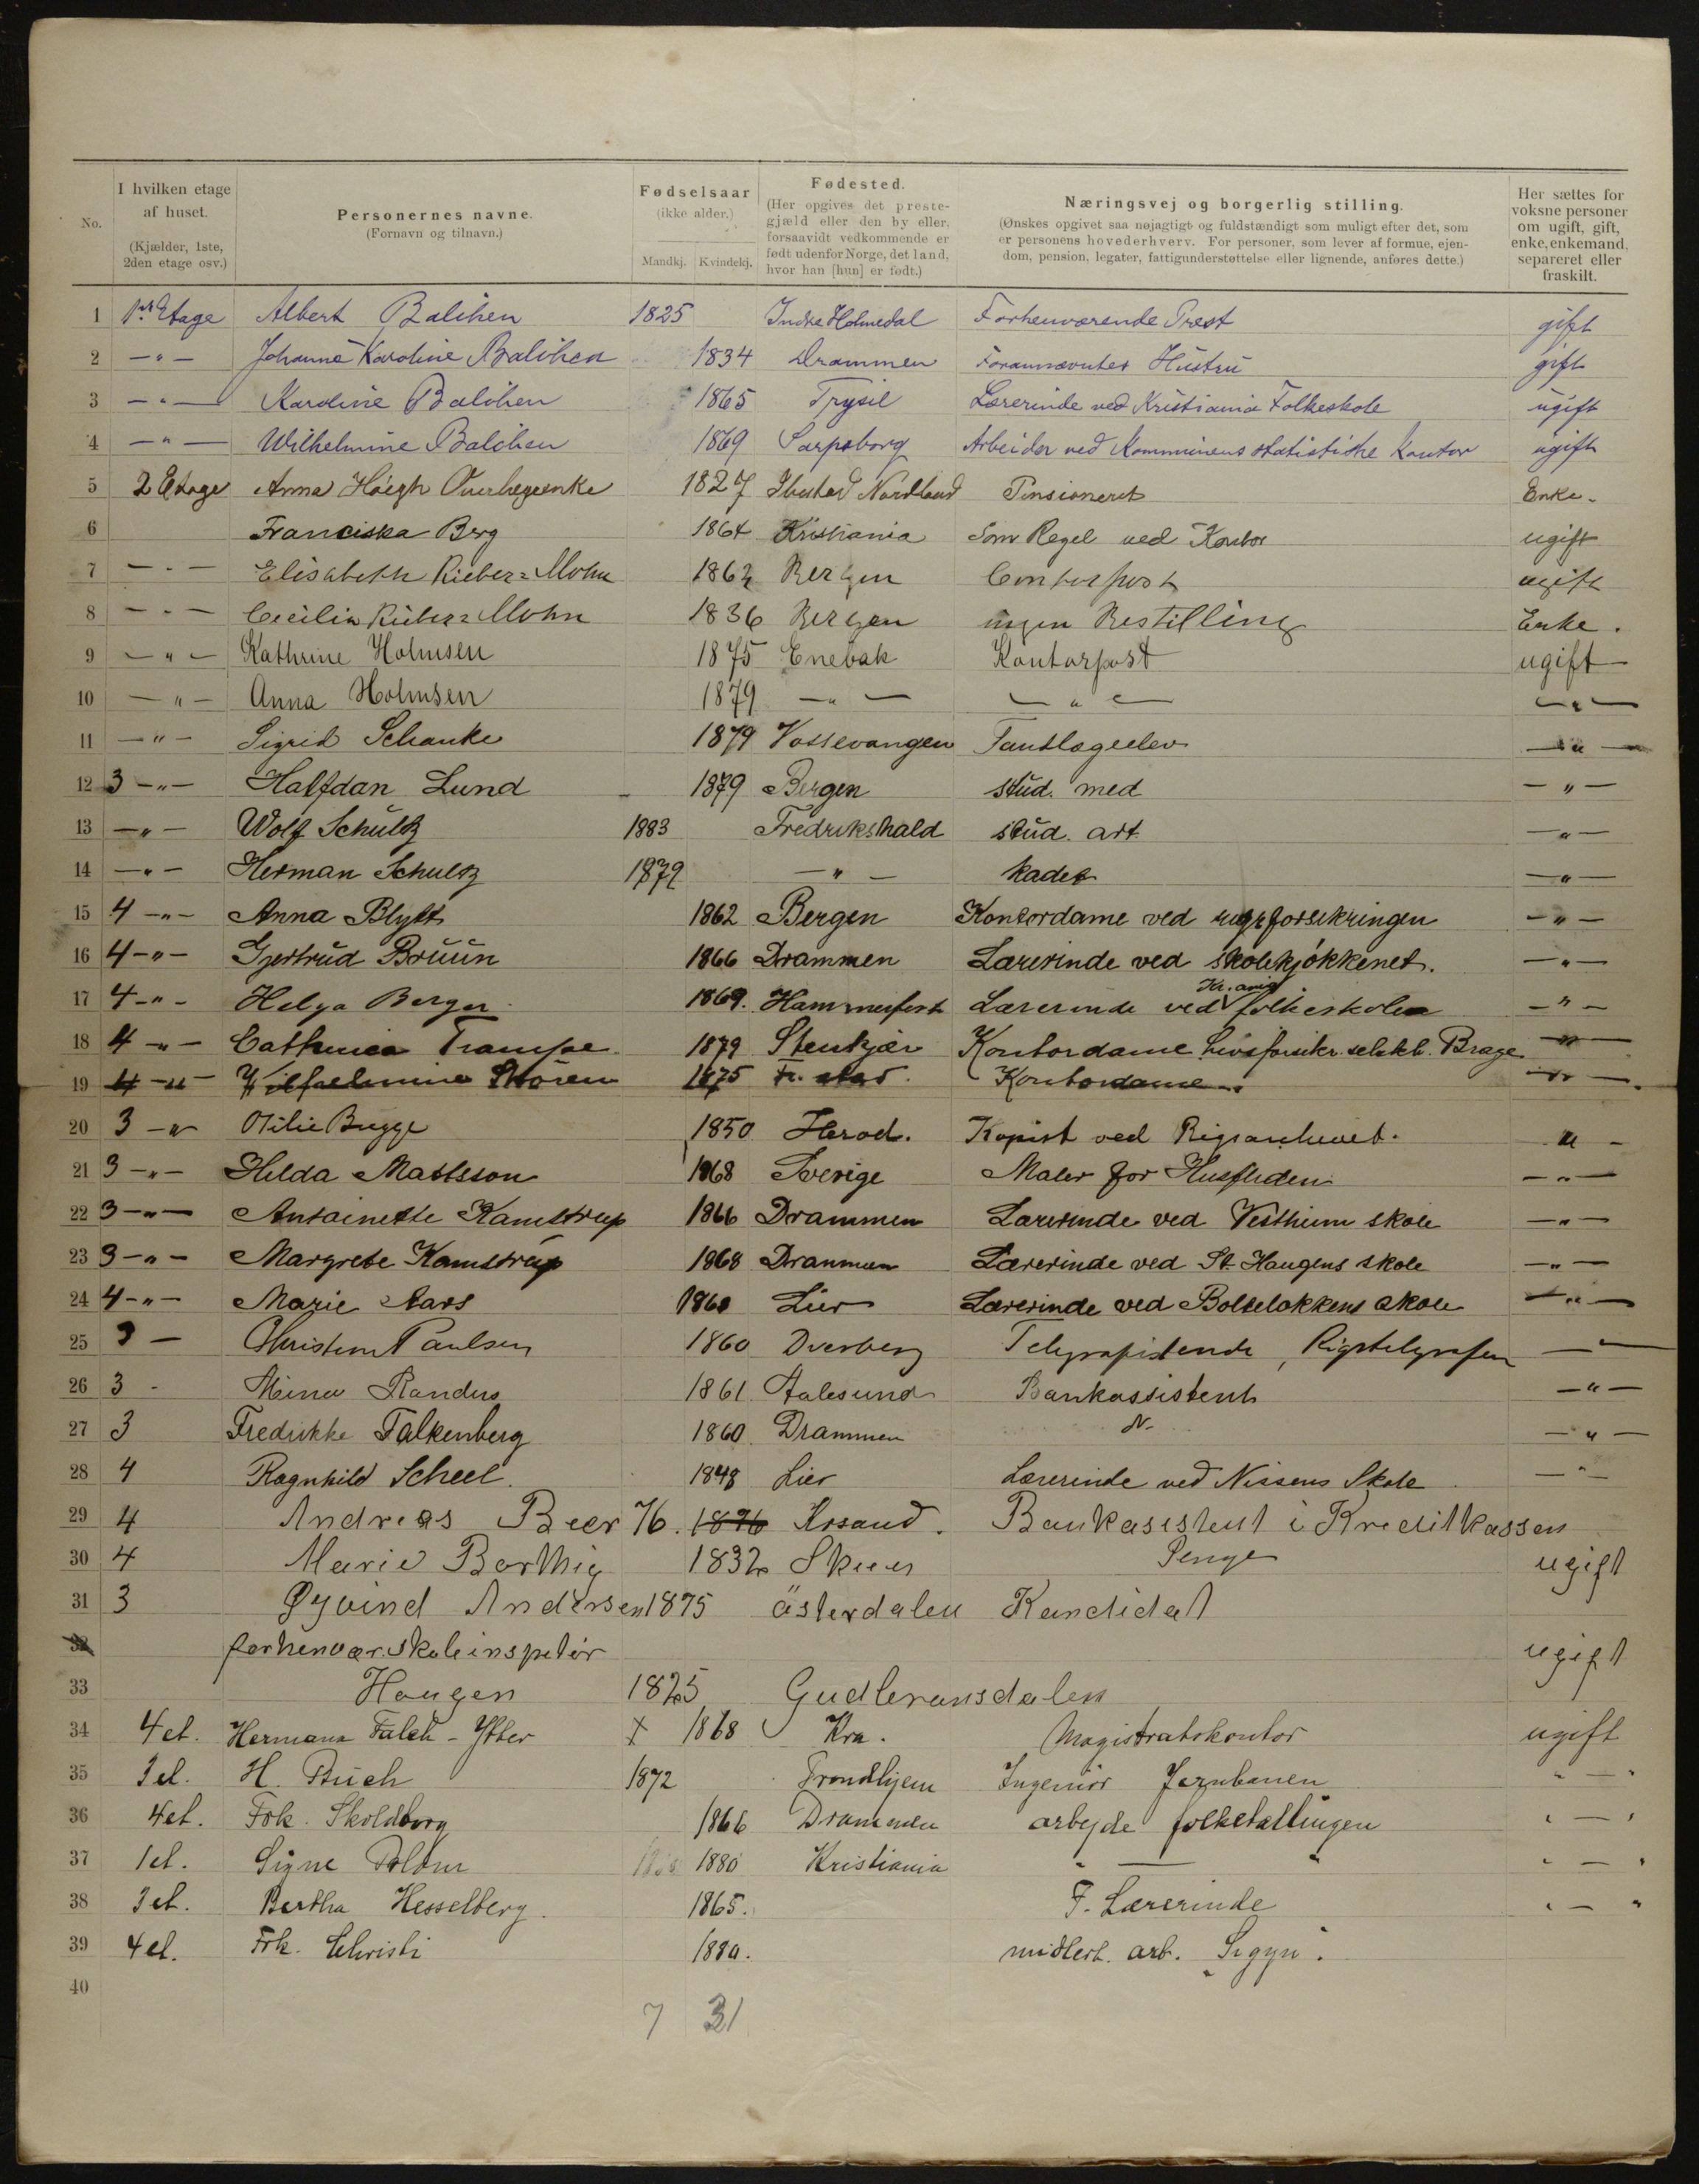 No.
I hvilken etage af huset. (Kjælder, 1ste, 2den etage osv.)
Personernes navne. (Fornavn og tilnavn.)
Fødselsaar (ikke alder.) Mandkj. Kvindekj.
Fødested. (Her opgives det prestegjæld eller den by eller, forsaavidt vedkommende er født udenfor Norge, det land, hvor han [hun] er født.)
Næringsvej og borgerlig stilling. (Ønskes opgivet saa nøjagtigt og fuldstændigt som muligt efter det, som er personens hovederhverv. For personer, som lever af formue, ejendom, pension, legater, fattigunderstøttelse eller lignende, anføres dette.)
Her sættes for voksne personer om ugift, gift, enke, enkemand, separeret eller fraskilt.
1 1ste Etage Albert Balchen 1825 Indre Holmedal Forhenværende Præst gift
2 -"- Johanne Karoline Balchen 1834 Drammen Forannævntes Hustru gift
3 -"- Karoline Balchen 1865 Trysil Lærerinde ved Kristiania Folkeskole ugift
4 -"- Wilhelmine Balchen 1869 Sarpsborg Arbeider ved Kommunens statistiske Kontor ugift
5 2 Etage Anna Höegh 1827 Ibestad Nordland Pensioneret Enke.
6 Franciska Berg 1864 Kristiania Som Regel ved Kontor ugift
7 -"- Elisabeth Rieber=Mohn 1862 Bergen Contorpost ugift
8 -"- Cecilia Rieber=Mohn 1836 Bergen ingen Bestilling Enke.
9 -"- Kathrine Holmsen 1875 Enebak Kontorpost ugift
10 -"- Anna Holmsen 1879 -"- -"- -"-
11 -"- Sigrid Schanke 1879 Vossevangen Tandlægeelev -"-
12 3 -"- Halfdan Lund 1879 Bergen stud. med -"-
13 -"- Wolf Schultz 1883 Fredrikshald stud. art. -"-
14 -"- Herman Schultz 1879 -"- kadet -"-
15 4 -"- Anna Blytt 1862 Bergen Kontordame ved -"-
16 4 -"- Gjertrud Bruun 1866 Drammen Lærerinde ved skolekjøkkenet. -"-
17 4 -"- Helga Berger 1869. Hammerfest Lærerinde ved Kr.ania folkeskole -"-
18 4 -"- Cathrine Trampe 1879 Stenkjær Kontordame Livsforsikr. selskb. Brage -"-
19 4 -"- Wilhelmine 1875 Kontordame. -"-
20 3 -"- Otilie Bugge 1850 Herød. Kopist ved Rigsarchivet. " -
21 3 -"- Hilda Mattsson 1868 Sverige Maler for Husfliden -"-
22 3 -"- Antoinette Kamstrup 1866 Drammen Lærerinde ved Vestheim skole -"-
23 3 -"- Margrete Kamstrup 1868 Drammen Lærerinde ved St Haugens skole -"-
24 4 -"- Marie Aars 1860 Lier Lærerinde ved Bolteløkkens skole -"-
25 3 - Christine Paulsen 1860 Dverberg Telegrafistinde, Rigstelegrafen -"-
26 3 - Mina Randers 1861 Aalesund Bankassistent -"-
27 3 Fredrikke Falkenberg 1860 Drammen -"-
28 4 Ragnhild Scheel. 1848 Lier Lærerinde ved Nissens Skole -"-
29 4 Andreas Beer 76. 1876 Krsand. Bankasistent i Kreditkassen
30 4 Marie Borthig 1832 Skien Penge ugift
31 3 Øyvind Andersen 1875 österdalen Kandidat
32 forhenvær. skoleinspektör ugift
33 Haugen 1825 Gudbransdalen
34 4 et. Hermana Falch - Ytter X 1868 Kra. Magistratskontor ugift
35 3 et. H. Buch 1872 Trondhjem Ingeniör Jernbanen " — "
36 4 et. Frk. Skoldborg 1866 Drammen arbejde folketællingen " — "
37 1 et. Signe 1880 Kristiania " — " " — "
38 3 et. Bertha Hesselberg. 1865. F. Lærerinde " — "
39 4 et. Frk. Christi 1880. midlert. arb. "Sigyn".
40
7 31